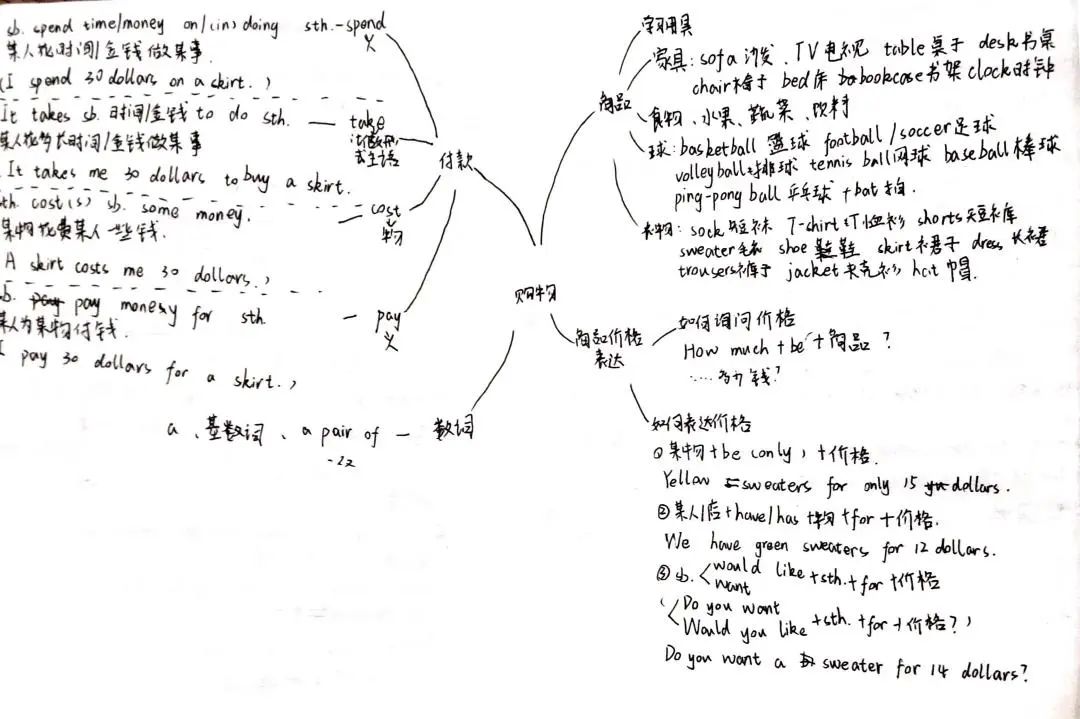 sb. spend time/money on/(in) doing sth. - spend
人
某人花时间/金钱做某事.
(I spend 30 dollars on a skirt.)
It takes sb. 时间/金钱 to do sth. — take
某人花多长时间/金钱做某事
It takes me 30 dollars to buy a skirt.
th. cost(s) sb. some money. — cost
物
某物花费某人一些钱.
A skirt costs me 30 dollars.)
b. pay money for sth. — pay
人
某人为某物付钱.
I pay 30 dollars for a skirt.)
付款
a、基数词、a pair of — 数词
一双
购物
商品
学习用具
家具: sofa 沙发、TV 电视 table 桌子 desk 书桌
chair 椅子 bed 床 bookcase 书架 clock 时钟
食物、水果、蔬菜、饮料
球: basketball 篮球 football/soccer 足球
volleyball 排球 tennis ball 网球 baseball 棒球
ping-pong ball 乒乓球 + bat 拍.
衣物: sock 短袜 T-shirt T恤衫 shorts 短裤
sweater 毛衣 shoe 鞋 skirt 裙子 dress 长裙
trousers 裤子 jacket 夹克衫 hat 帽.
商品价格
表达
如何询问价格
How much + be + 商品?
……多少钱?
如何表达价格
①某物+be (only) +价格.
Yellow sweaters for only 15 dollars.
②某人/店+have/has+物+for+价格.
We have green sweaters for 12 dollars.
③sb. < would like
want +sth.+for+价格
(< Do you want
Would you like +sth.+for+价格?)
Do you want a sweater for 14 dollars?